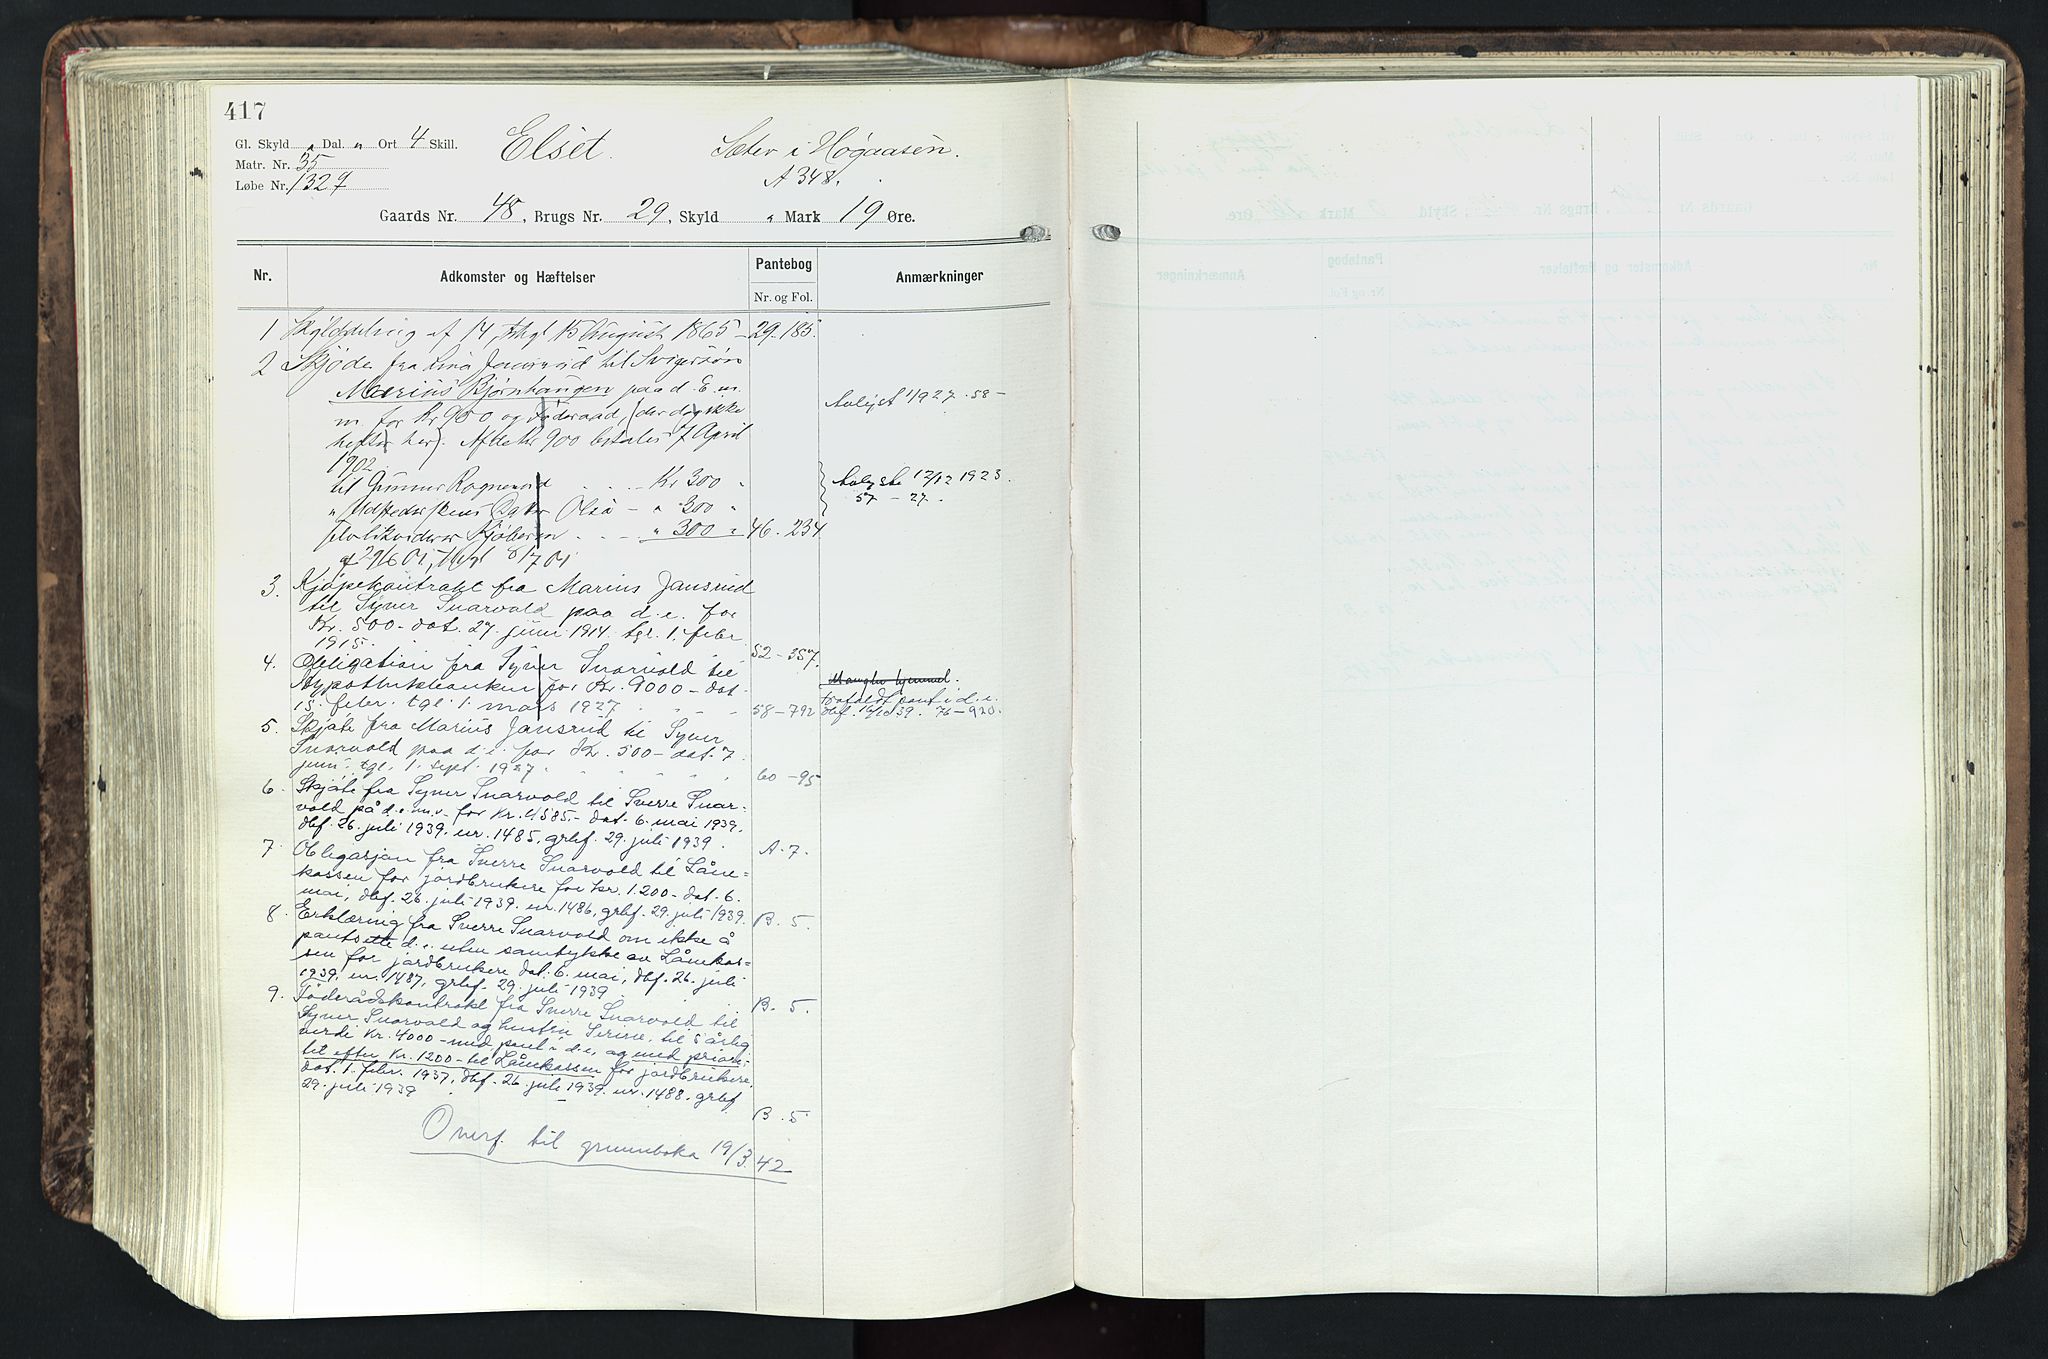 417
Gl. Skyld „ Dal. „ Ort 4 Skill.
Matr. Nr. 35
Løbe Nr. 1327
Elset.
Sæter i Høgaasen.
A 348.
Gaards Nr. 48, Brugs Nr. 29, Skyld „ Mark 19 Øre.
Nr. Adkomster og Hæftelser Pantebog Anmærkninger
Nr. og Fol.
1 Skylddeling af 14, thgl 15 August 1865 – 29.185.
2 Skjøde fra Jansrud til Svigersøn
Marius Bjørnhaugen paa d. E. m.
m. for Kr 950 og Føderaad, (der dog ikke
Aulyst 1/1927. 58 –
hefter her). Af de Kr 900 betales 7 April
1902
til Gunnar Rognerud . . . . Kr 300 „
Aulyste 12/12 1923.
57 – 27.
„ Olea – „ 300 „
selv likviderer Kjøberen . . . . „ 300 „ 46.234
af 29/6 01, thgl 8/7 01
3. Kjøpekontrakt fra Marius Jansrud
til Syver Snarvold paa d. e. for
Kr. 500 – dat. 27. juni 1914. tgl. 1. febr
1915. 52 – 357.
4. Obligation fra Syver Snarvold til
Hypothekbanken for Kr. 9000 – dat.
Mangler hjemmel.
15. febr. tgl. 1. mars 1927 58 – 792
frafaldt pant i d. e.
dbf. 16/10 39. 76 – 920.
5. Skjøte fra Marius Jansrud til Syver
Snarvold paa d. e. for Kr. 500 – dat. 7.
juni tgl. 1. sept. 1927. 60 – 95
6. Skjøte fra Syver Snarvold til Sverre Snar-
vold på d. e. m. v. for Kr. 4585.– dat. 6. mai 1939,
dbf. 26. juli 1939. nr. 1485, grbf. 29. juli 1939. A. 7.
7. Obligasjon fra Sverre Snarvold til Låne-
kassen for jordbrukere for kr. 1.200 – dat. 6.
mai, dbf. 26. juli 1939. nr. 1486, grbf. 29. juli 1939. B. 5.
8. Erklæring fra Sverre Snarvold om ikke å
pantsette d. e. uten samtykke av Lånekas-
sen for jordbrukere dat. 6. mai, dbf. 26. juli
1939. nr. 1487, grbf. 29. juli 1939 B. 5.
9. Föderådskontrakt fra Sverre Snarvold til
Syver Snarvold og hustru Serine, til 5 årlig
verdi Kr. 4000 – med pant i d. e. og med priori-
tet efter Kr. 1200 – til Lånekassen for jordbrukere,
dat. 1. febr. 1937, dbf. 26. juli 1939. nr. 1488. grbf
29. juli 1939 B. 5
Overf. til grunnboka 19/3.42